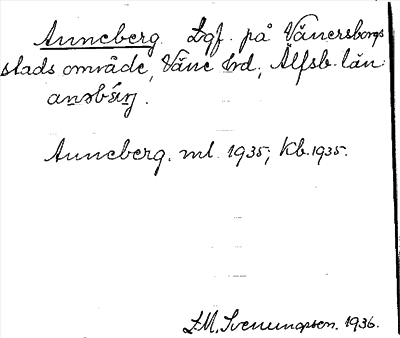 Anneberg. Lgf. på Vänersborgs
stads område, Väne hd, Älfsb. län.
Anneberg. ml. 1935; kb. 1935.
1936.